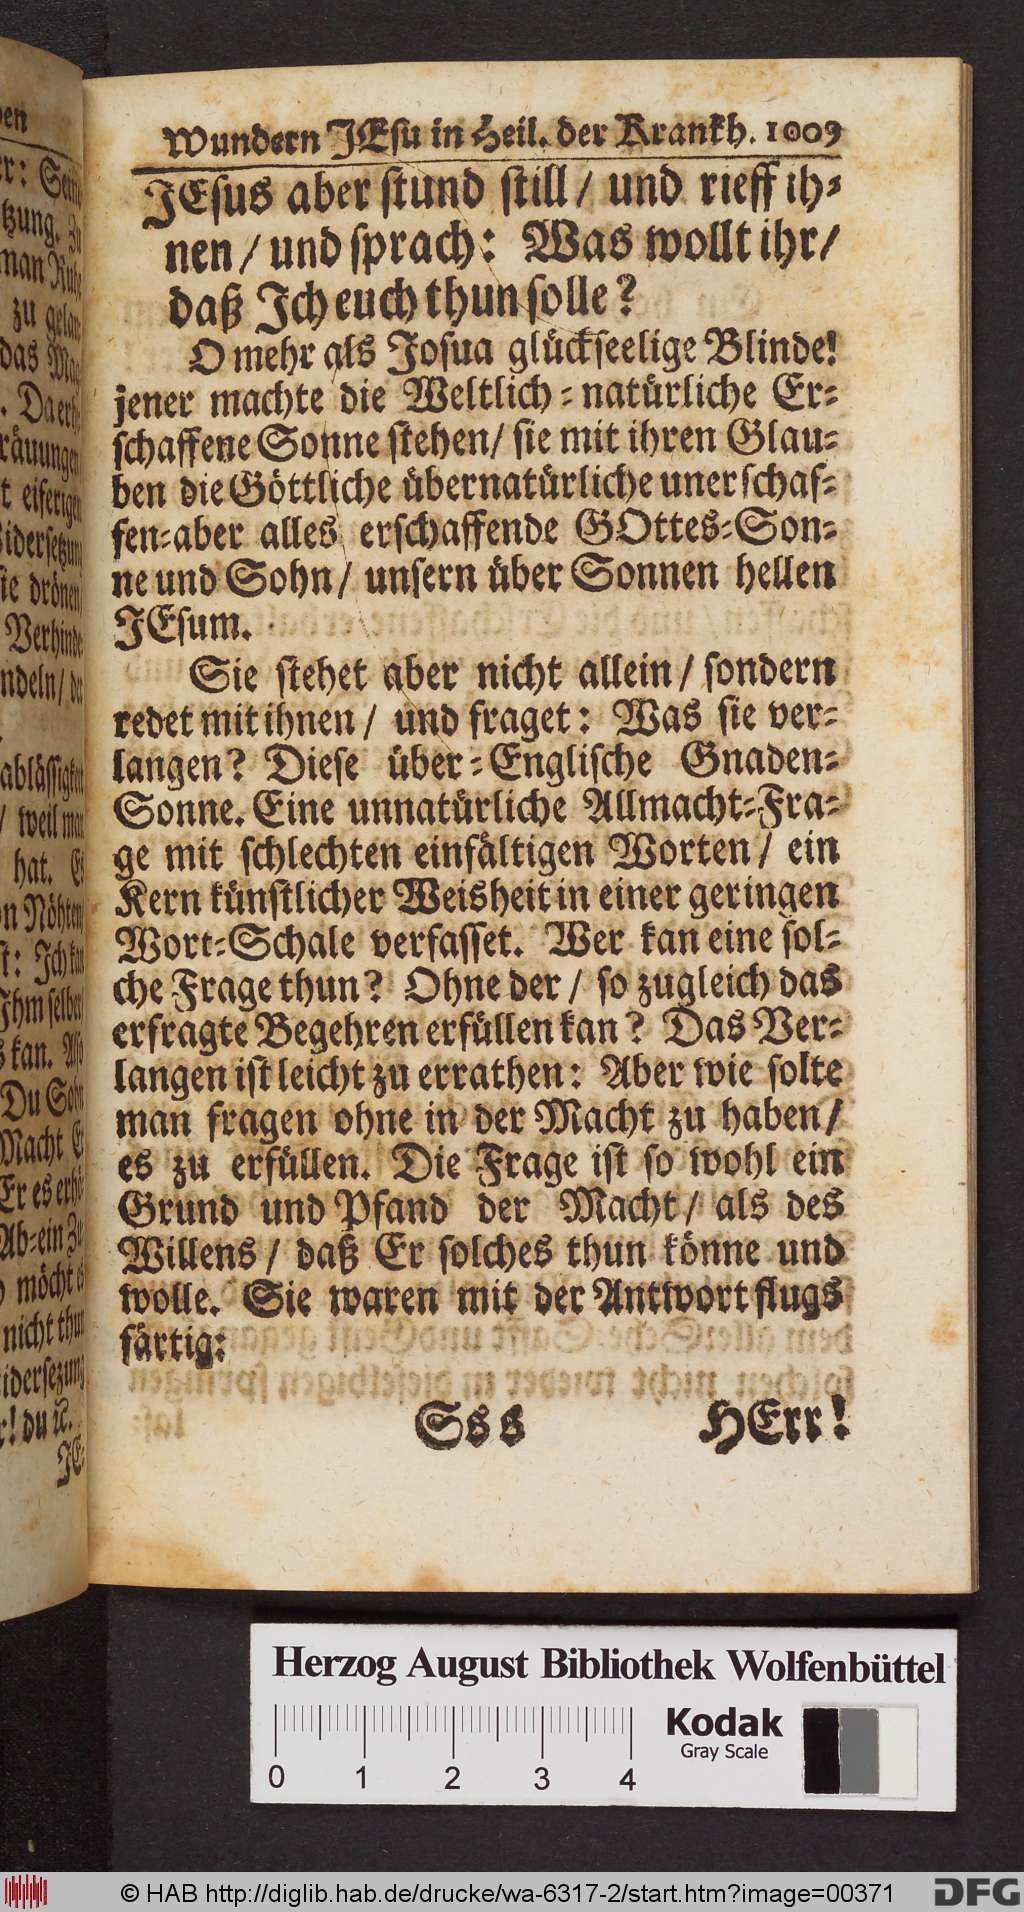 Wundern JEsu in Heil. der Krankh. 1009
JEsus aber stund still / und rieff ih=
nen / und sprach: Was wollt ihr /
daß Ich euch thun solle?
O mehr als Josua glückseelige Blinde!
jener machte die Weltlich=natürliche Er=
schaffene Sonne stehen / sie mit ihren Glau=
ben die Göttliche übernatürliche unerschaf=
fen=aber alles erschaffende GOttes=Son=
ne und Sohn / unsern über Sonnen hellen
JEsum.
Sie stehet aber nicht allein / sondern
redet mit ihnen / und fraget: Was sie ver=
langen? Diese über=Englische Gnaden=
Sonne. Eine unnatürliche Allmacht=Fra=
ge mit schlechten einfältigen Worten / ein
Kern künstlicher Weisheit in einer geringen
Wort=Schale verfasset. Wer kan eine sol=
che Frage thun? Ohne der / so zugleich das
erfragte Begehren erfüllen kan? Das Ver=
langen ist leicht zu errathen: Aber wie solte
man fragen ohne in der Macht zu haben /
es zu erfüllen. Die Frage ist so wohl ein
Grund und Pfand der Macht / als des
Willens / daß Er solches thun könne und
wolle. Sie waren mit der Antwort flugs
färtig:
Sss HErr!
Herzog August Bibliothek Wolfenbüttel
Kodak
Gray Scale
0 1 2 3 4
© HAB http://diglib.hab.de/drucke/wa-6317-2/start.htm?image=00371
DFG